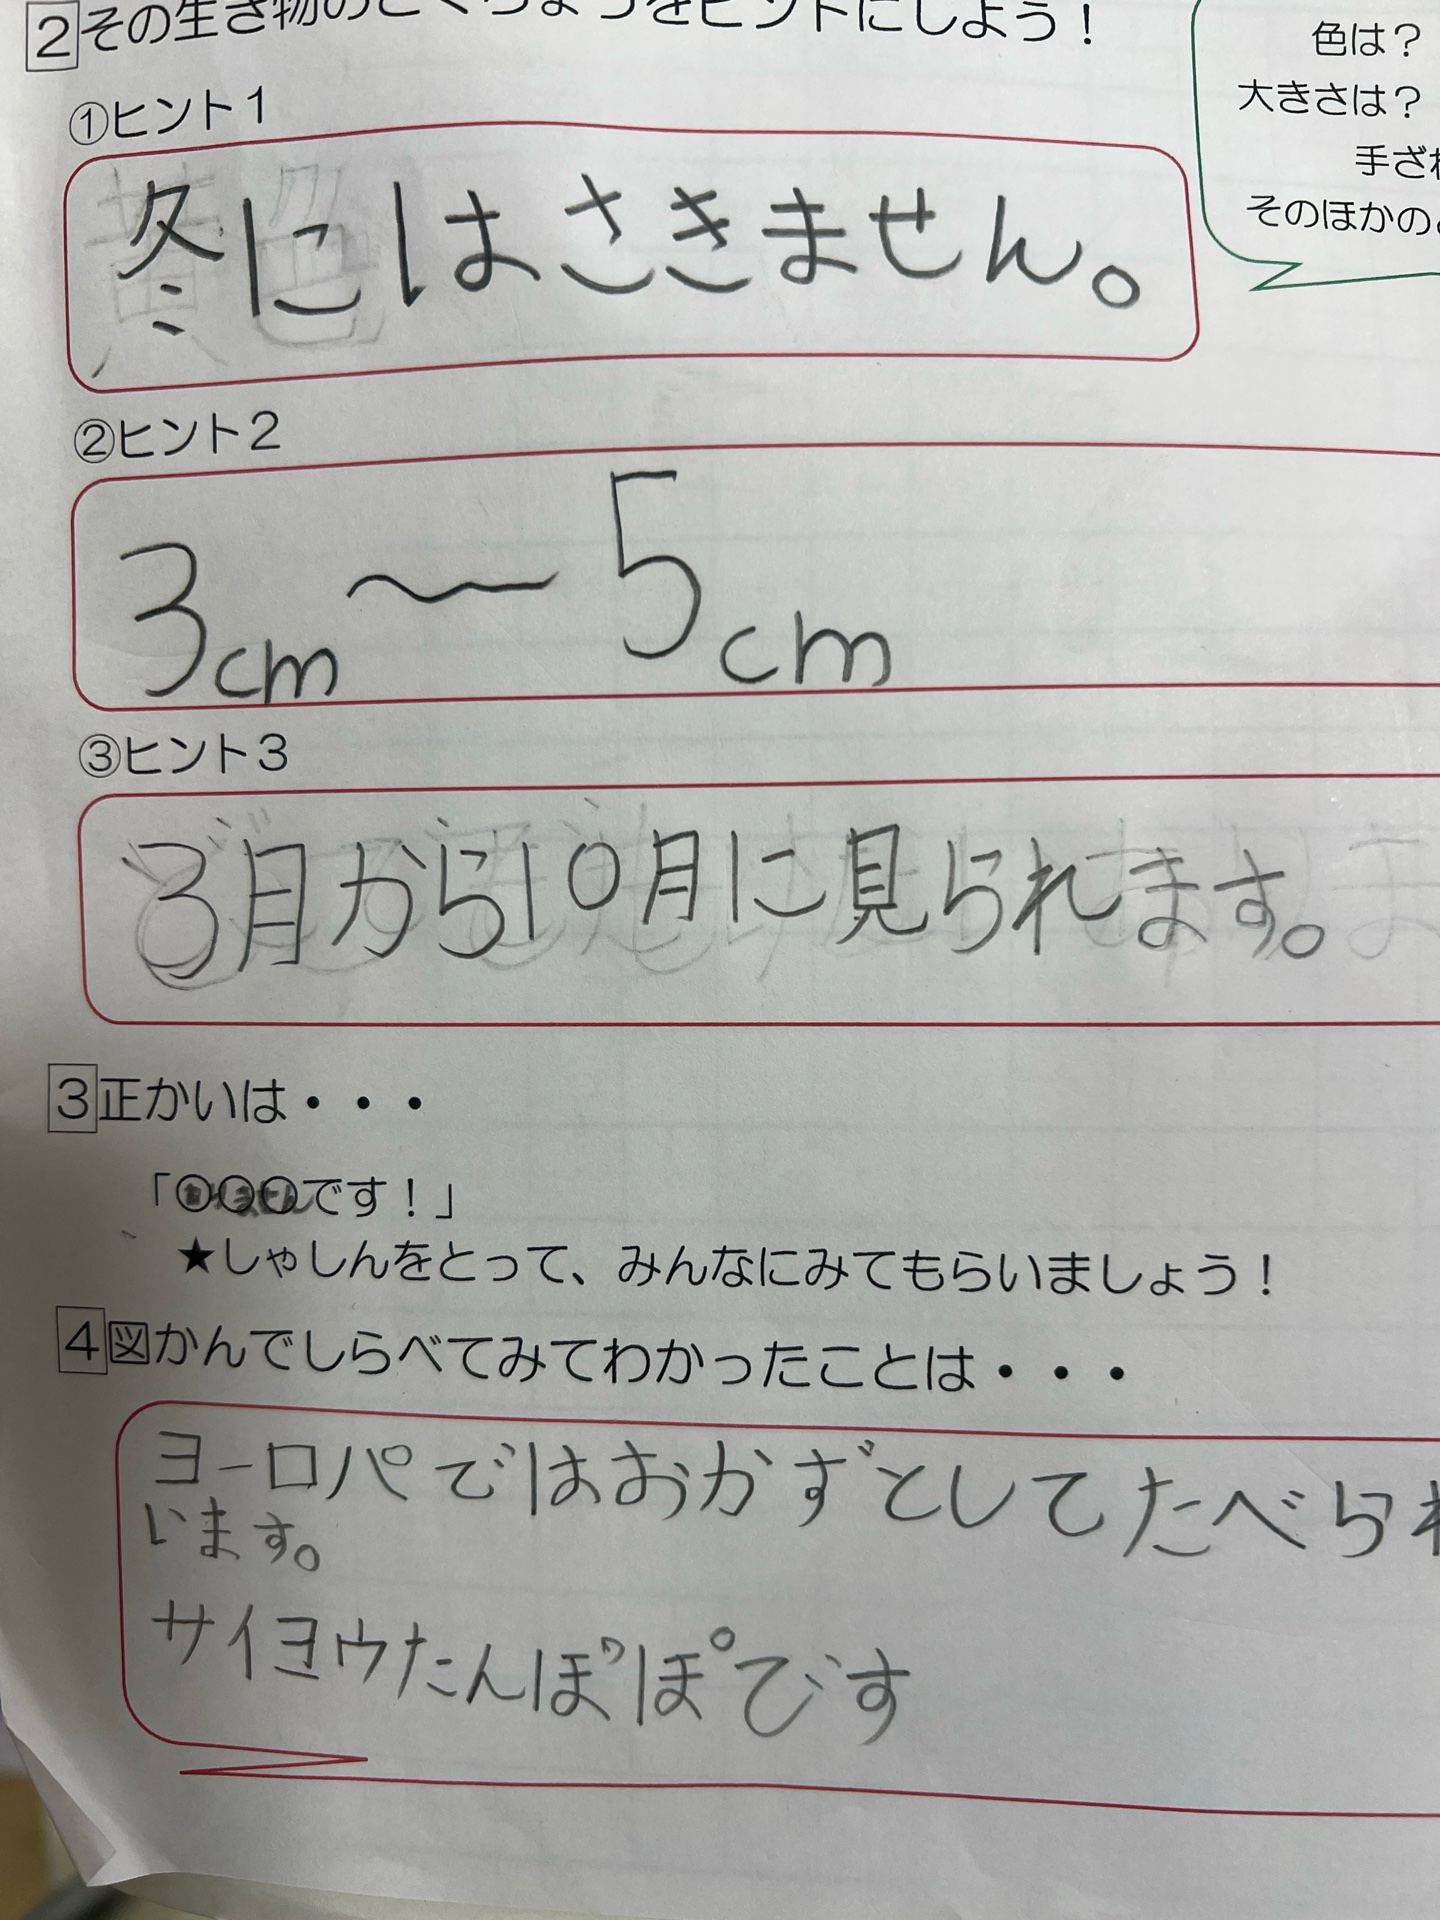 2 その生き物のとくちょうをヒントにしよう！
色は？
大きさは？
手ざわ
そのほかの
①ヒント１
冬にはさきません。
②ヒント２
3cm〜5cm
③ヒント３
3月から10月に見られます。
3 正かいは・・・
「○○○です！」
★しゃしんをとって、みんなにみてもらいましょう！
4 図かんでしらべてみてわかったことは・・・
ヨーロパではおかずとしてたべられ
います。
サイヨウたんぽぽです